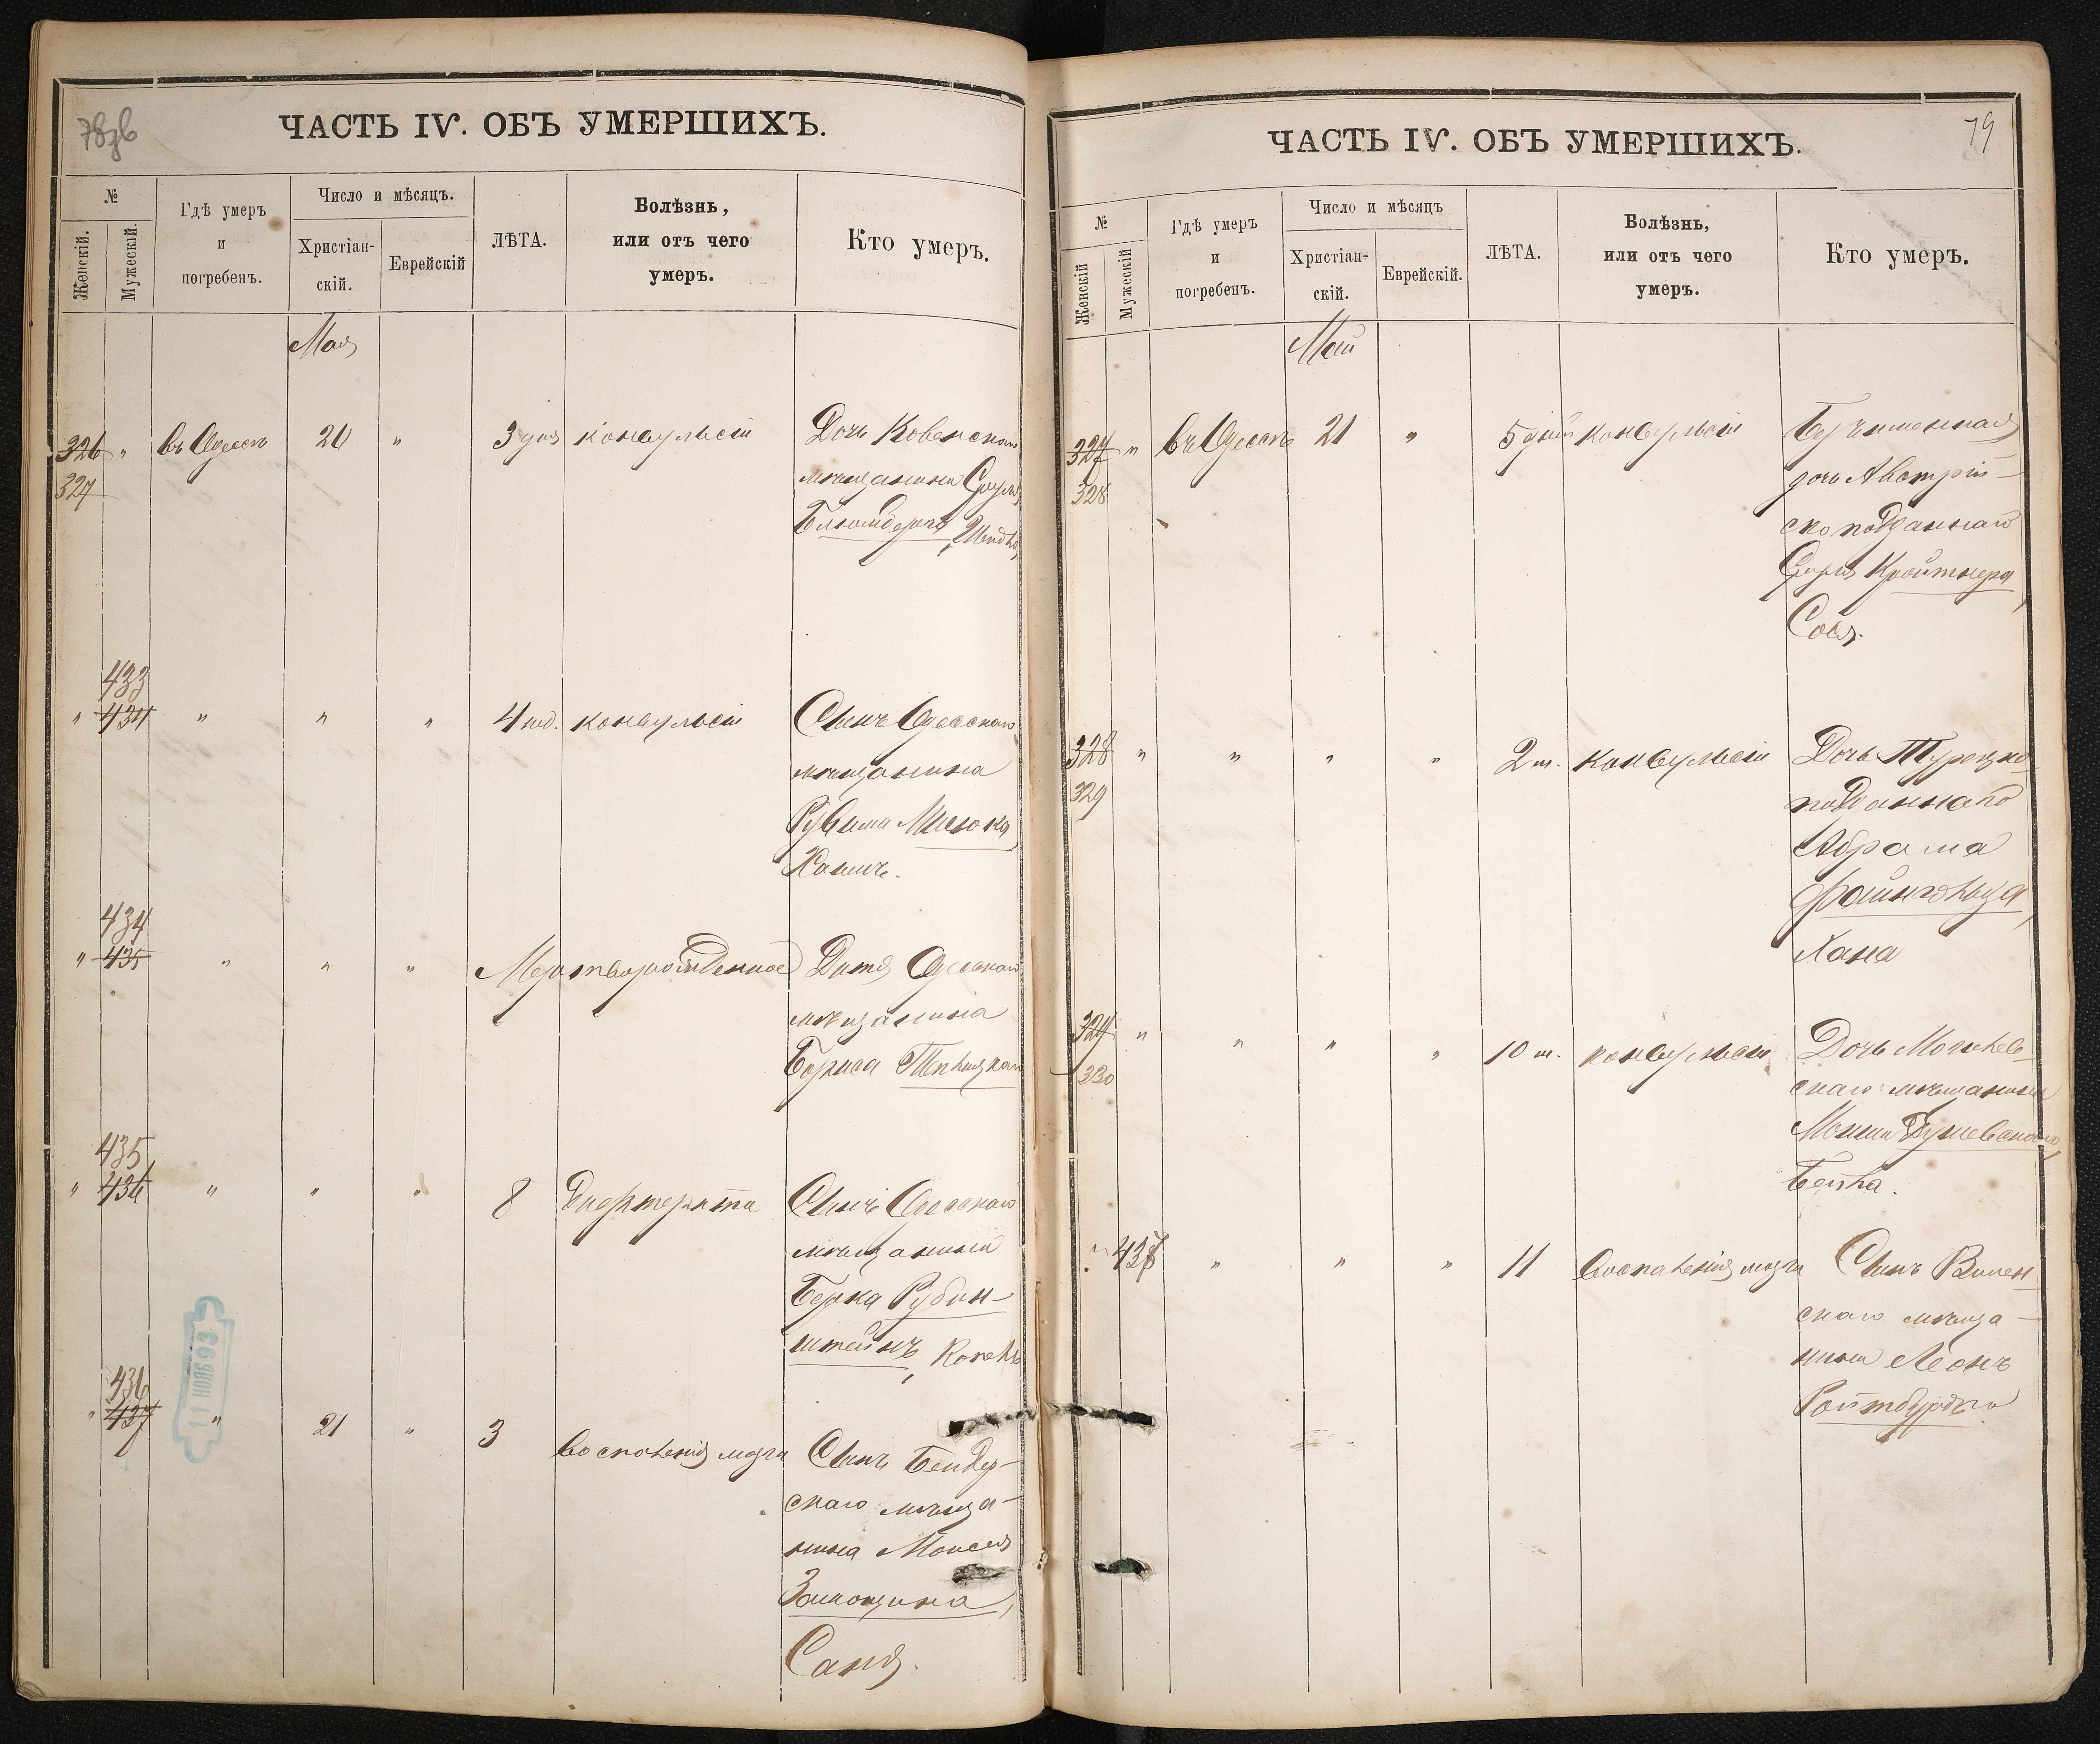 78об
ЧАСТЬ IV. ОБЪ УМЕРШИХЪ.
№
Женскій.
Мужескій.
Гдѣ умеръ
и
погребенъ.
Число и мѣсяцъ.
Христіан-
скій.
Еврейскій
ЛѢТА.
Болѣзнь,
или отъ чего
умеръ.
Кто умеръ.
Мая
326 " въ Одессѣ 20 " 3 дня конвульсіи Дочь Ковенскаго
327
мѣщанина Сруля
Блюмберга,
433
" 434 " " " 4 конвульсіи Сынъ Одесскаго
мѣщанина
Рувима
Хаимъ.
434
" 435 " " " Мертворожденное Дитя Одесскаго
мѣщанина
Бориса
435
" 436 " " " 8 Дифтерита Сынъ Одесскаго
мѣщанина
Берка Рубин-
штейнъ,
436
" 437 " 21 " 3 воспаленія мозга Сынъ Бендер-
скаго мѣща-
нина Моисея
Замощина,
Саня.
11 НОЯБ 93
79
ЧАСТЬ IV. ОБЪ УМЕРШИХЪ.
№
Женскій
Мужескій
Гдѣ умеръ
и
погребенъ.
Число и мѣсяцъ
Христіан-
скій.
Еврейскій.
ЛѢТА.
Болѣзнь,
или отъ чего
умеръ.
Кто умеръ.
Май
327 " въ Одессѣ 21 " 5 дней конвульсіи Безъименная
328
дочь Австрій-
ско подданнаго
Сруля Крайтнера,
Сося.
328 " " " " 2 м. конвульсіи Дочь Турецко
329
подданнаго
Абрама
Файнгольда,
Хана
329 " " " " 10 м. конвульсіи Дочь Могилев-
330
скаго мѣщанина
Бейла.
" 437 " " " 11 воспаленія мозга Сынъ Вилен-
скаго мѣща-
нина Леонъ
Ройтбурдъ